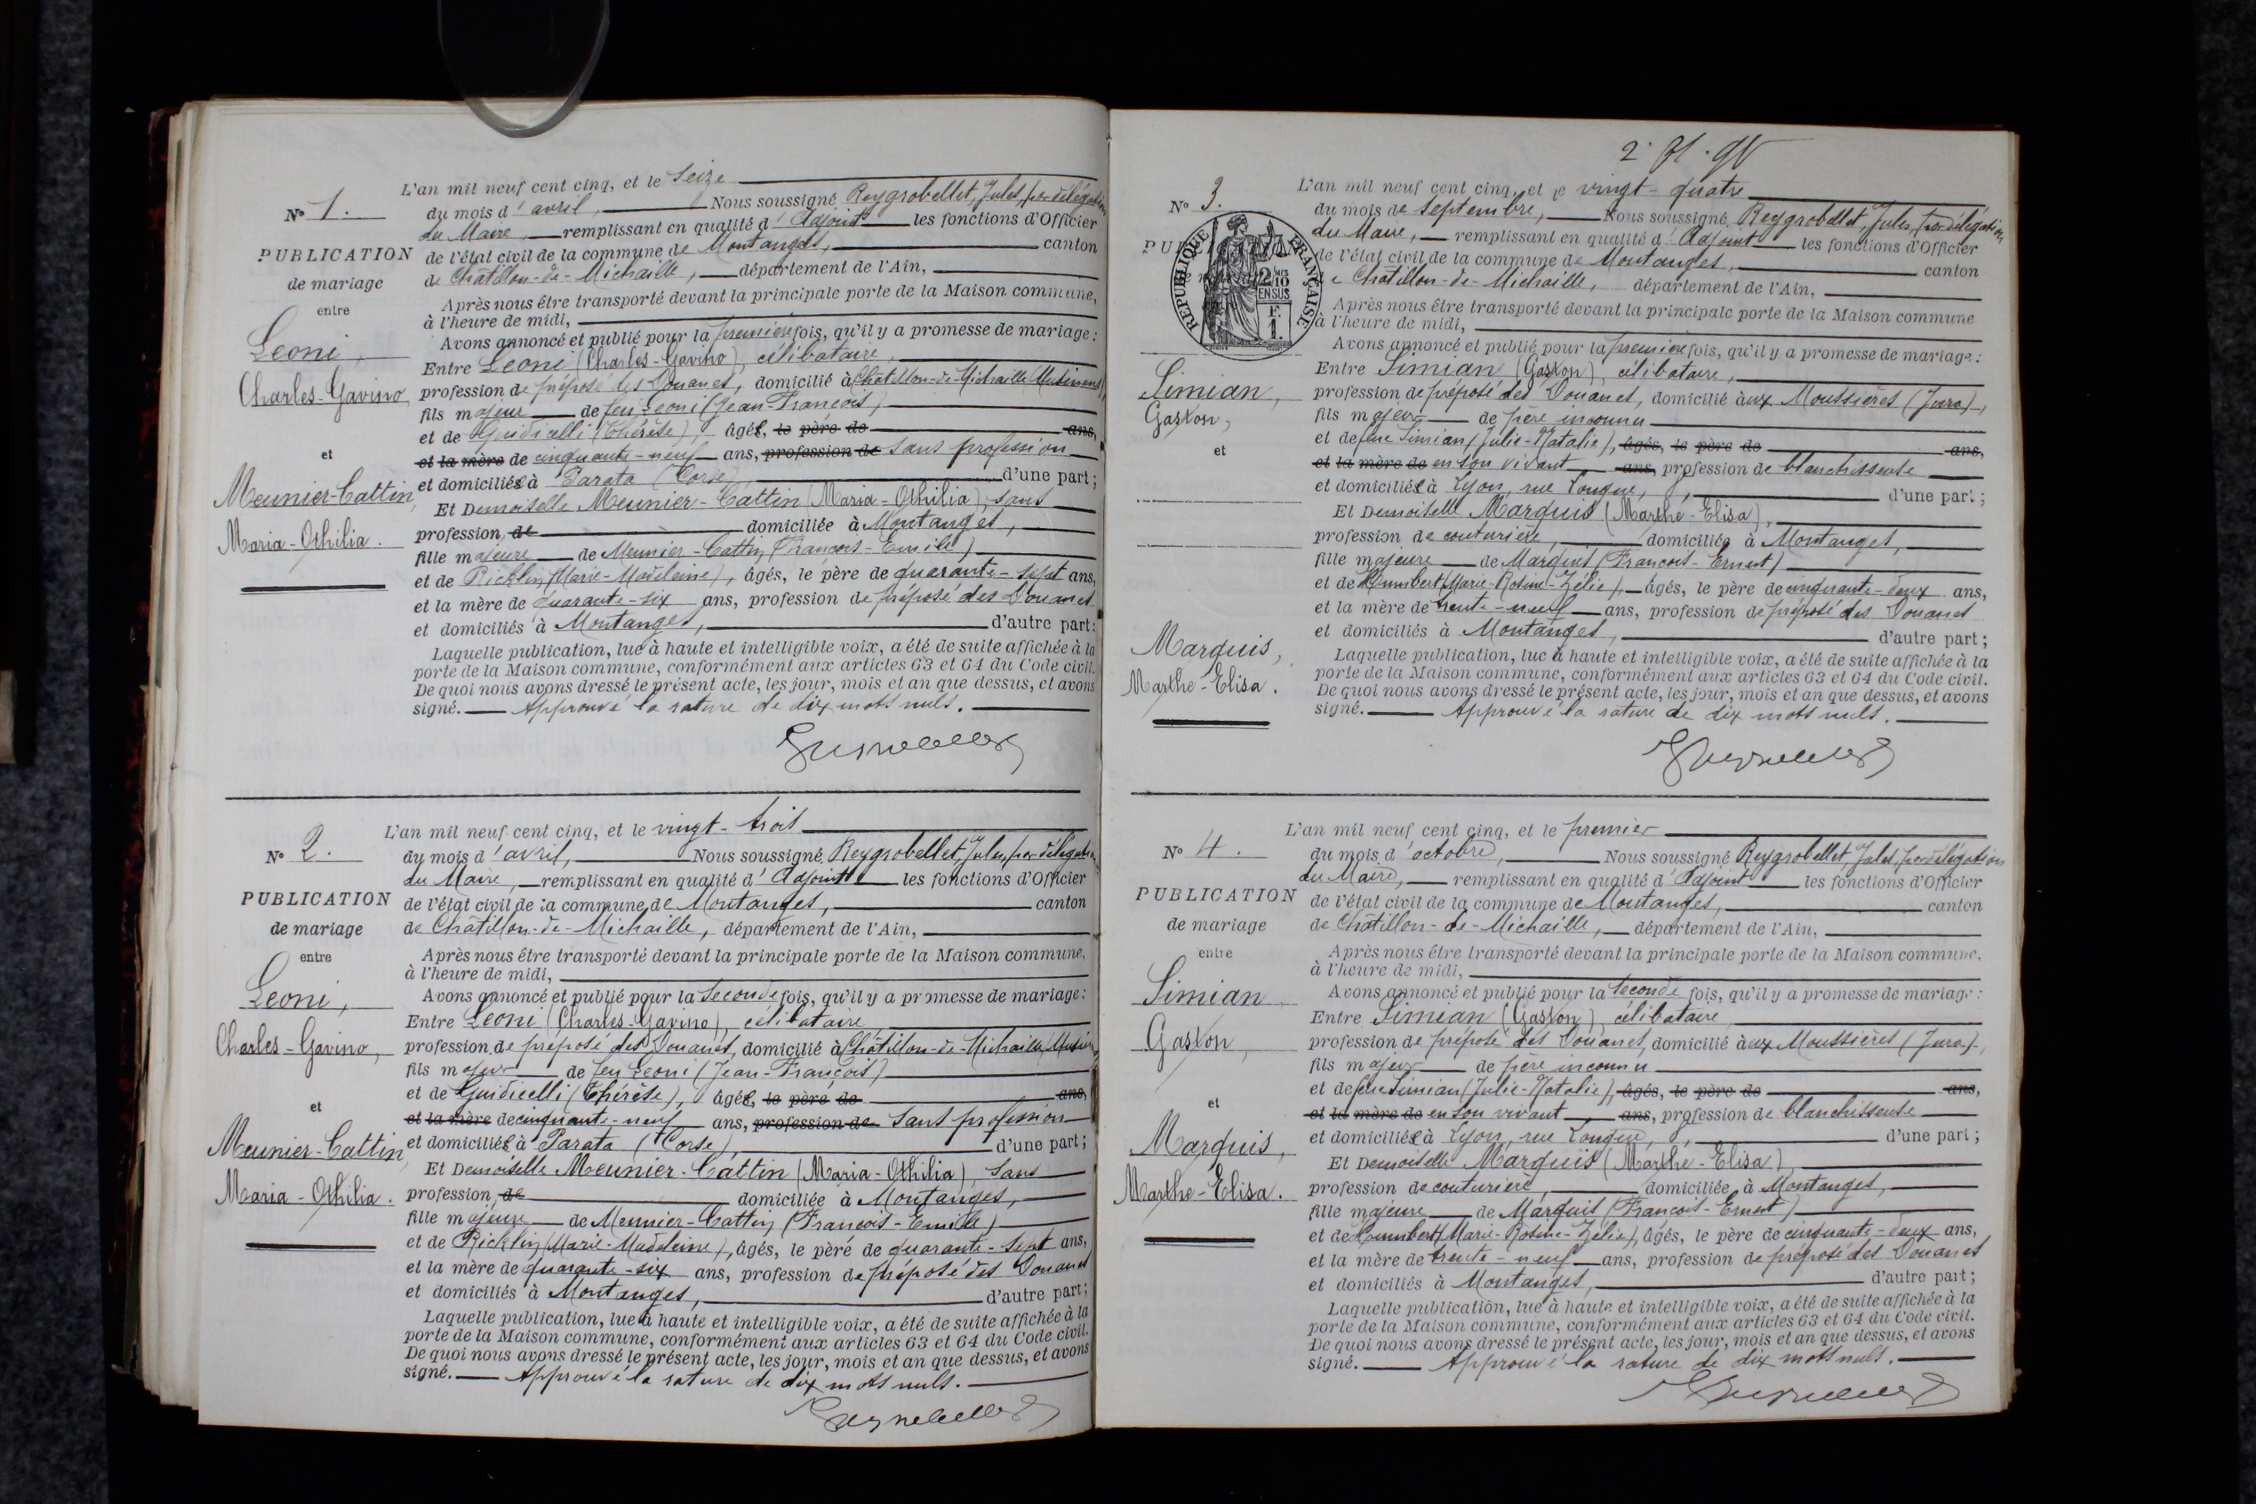 N° 1.
PUBLICATION
de mariage
entre
Leoni,
Charles-Gavino
et
Meunier-Cattin,
Maria-Othilia.
L'an mil neuf cent cinq, et le Seize
du mois d'avril, Nous soussigné Reygrobellet, Jules, par délégation
du Maire remplissant en qualité d'Adjoint les fonctions d'Officier
de l'état civil de la commune de Montanges, canton
de Châtillon-de-Michaille, département de l'Ain,
Après nous être transporté devant la principale porte de la Maison commune,
à l'heure de midi,
Avons annoncé et publié pour la première fois, qu'il y a promesse de mariage:
Entre Leoni (Charles-Gavino), célibataire,
profession de préposé des Douanes, domicilié à Châtillon-de-Michaille
fils majeur de feu Leoni (Jean-François)
et de Guidicelli (Thérèse), âgée, le père de ans,
et la mère de cinquante-neuf ans, profession de sans profession
et domiciliée à Parata (Corse) d'une part;
Et Demoiselle Meunier-Cattin (Maria-Othilia), sans
profession de domiciliée à Montanges,
fille majeure de Meunier-Cattin (François-Emile)
et de Ricklin (Marie-Madeleine), âgés, le père de quarante-sept ans,
et la mère de quarante-six ans, profession de préposé des Douanes
et domiciliés à Montanges, d'autre part;
Laquelle publication, lue à haute et intelligible voix, a été de suite affichée à la
porte de la Maison commune, conformément aux articles 63 et 64 du Code civil.
De quoi nous avons dressé le présent acte, les jour, mois et an que dessus, et avons
signé. Approuvé la rature de dix mots nuls.
N° 2.
PUBLICATION
de mariage
entre
Leoni,
Charles-Gavino,
et
Meunier-Cattin,
Maria-Othilia.
L'an mil neuf cent cinq, et le vingt-trois
du mois d'avril, Nous soussigné Reygrobellet, Jules, par délégation
du Maire, remplissant en qualité d'Adjoint les fonctions d'Officier
de l'état civil de la commune de Montanges, canton
de Châtillon-de-Michaille, département de l'Ain,
Après nous être transporté devant la principale porte de la Maison commune,
à l'heure de midi,
Avons annoncé et publié pour la seconde fois, qu'il y a promesse de mariage:
Entre Leoni (Charles-Gavino), célibataire
profession de préposé des Douanes, domicilié à Châtillon-de-Michaille
fils majeur de feu Leoni (Jean-François)
et de Guidicelli (Thérèse), âgée, le père de ans,
et la mère de cinquante-neuf ans, profession de sans profession
et domiciliée à Parata (Corse), d'une part;
Et Demoiselle Meunier-Cattin (Maria-Othilia), sans
profession, de domiciliée à Montanges,
fille majeure de Meunier-Cattin (François-Emile)
et de Ricklin (Marie-Madeleine), âgés, le père de quarante-sept ans,
et la mère de quarante-six ans, profession de préposé des Douanes
et domiciliés à Montanges, d'autre part;
Laquelle publication, lue à haute et intelligible voix, a été de suite affichée à la
porte de la Maison commune, conformément aux articles 63 et 64 du Code civil.
De quoi nous avons dressé le présent acte, les jour, mois et an que dessus, et avons
signé. Approuvé la rature de dix mots nuls.
N° 3.
PU
RÉPUBLIQUE FRANÇAISE
2/10
EN SUS
F.
1.
Simian,
Gaston,
et
Marquis,
Marthe-Elisa.
L'an mil neuf cent cinq, et le vingt-quatre
du mois de septembre, Nous soussigné Reygrobellet, Jules, par délégation
du Maire, remplissant en qualité d'Adjoint les fonctions d'Officier
de l'état civil de la commune de Montanges, canton
e Châtillon-de-Michaille, département de l'Ain,
Après nous être transporté devant la principale porte de la Maison commune
à l'heure de midi,
Avons annoncé et publié pour la première fois, qu'il y a promesse de mariage:
Entre Simian (Gaston), célibataire,
profession de préposé des Douanes, domicilié aux Moussières (Jura),
fils majeur de père inconnu
et de feue Simian (Julie-Natalie), âgés, le père de ans,
et la mère de en son vivant ans, profession de blanchisseuse
et domiciliée à Lyon, rue Longue, d'une part;
Et Demoiselle Marquis (Marthe-Elisa),
profession de couturière, domiciliée à Montanges,
fille majeure de Marquis (François-Ernest)
et de Humbert (Marie-Rosine-Zélie), âgés, le père de cinquante-deux ans,
et la mère de trente-neuf ans, profession de préposé des Douanes
et domiciliés à Montanges, d'autre part;
Laquelle publication, lue à haute et intelligible voix, a été de suite affichée à la
porte de la Maison commune, conformément aux articles 63 et 64 du Code civil.
De quoi nous avons dressé le présent acte, les jour, mois et an que dessus, et avons
signé. Approuvé la rature de dix mots nuls.
N° 4.
PUBLICATION
de mariage
entre
Simian
Gaston,
et
Marquis,
Marthe-Elisa.
L'an mil neuf cent cinq, et le premier
du mois d'octobre, Nous soussigné Reygrobellet, Jules, par délégation
du Maire, remplissant en qualité d'Adjoint les fonctions d'Officier
de l'état civil de la commune de Montanges, canton
de Châtillon-de-Michaille, département de l'Ain,
Après nous être transporté devant la principale porte de la Maison commune,
à l'heure de midi,
Avons annoncé et publié pour la seconde fois, qu'il y a promesse de mariage:
Entre Simian (Gaston), célibataire,
profession de préposé des Douanes, domicilié aux Moussières (Jura),
fils majeur de père inconnu
et de feue Simian (Julie-Natalie), âgés, le père de ans,
et la mère de en son vivant ans, profession de blanchisseuse
et domiciliée à Lyon, rue Longue, d'une part;
Et Demoiselle Marquis (Marthe-Elisa)
profession de couturière, domiciliée à Montanges,
fille majeure de Marquis (François-Ernest)
et de Humbert (Marie-Rosine-Zélie), âgés, le père de cinquante-deux ans,
et la mère de trente-neuf ans, profession de préposé des Douanes
et domiciliés à Montanges, d'autre part;
Laquelle publication, lue à haute et intelligible voix, a été de suite affichée à la
porte de la Maison commune, conformément aux articles 63 et 64 du Code civil.
De quoi nous avons dressé le présent acte, les jour, mois et an que dessus, et avons
signé. Approuvé la rature de dix mots nuls.